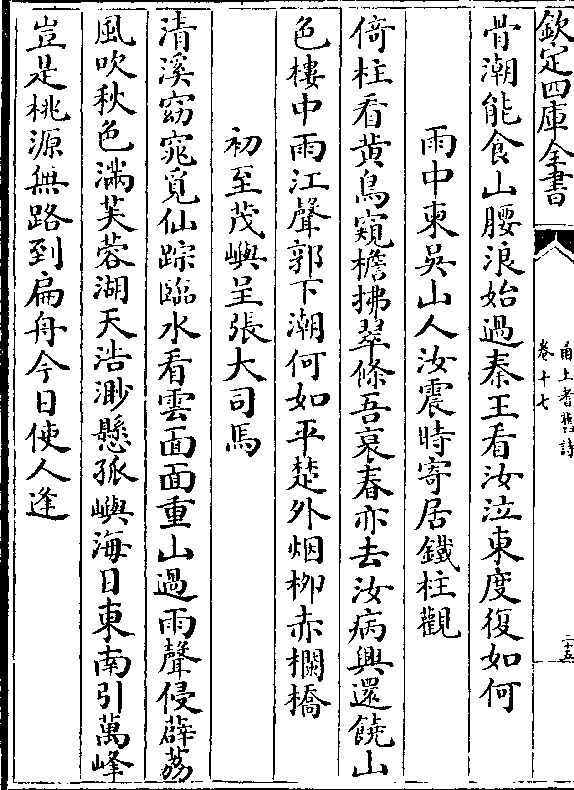 欽定四庫全書
甬上耆舊詩
卷十七
二十五
骨潮能食山腰浪始過秦王看汝泣東度復如何
雨中柬吳山人汝震時寄居鐵柱觀
倚柱看黃鳥窺檐拂翠條吾哀春亦去汝病興還饒山
色樓中雨江聲郭下潮何如平楚外烟柳赤欄橋
初至茂嶼呈張大司馬
清溪窈窕覓仙踪臨水看雲面面重山過雨聲侵薜荔
風吹秋色滿芙蓉湖天浩渺懸孤嶼海日東南引萬峰
豈是桃源無路到扁舟今日使人逢